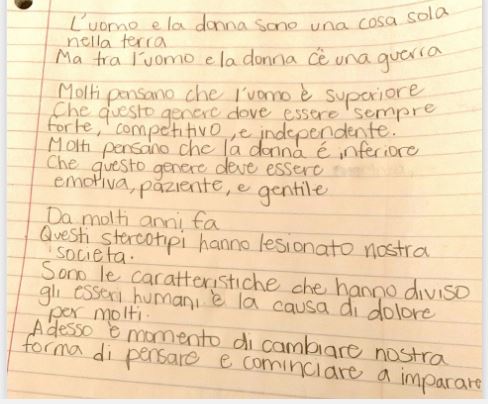 L'uomo e la donna sono una cosa sola
nella terra
Ma tra l'uomo e la donna c'è una guerra
Molti pensano che l'uomo è superiore
Che questo genere dove essere sempre
forte, competitivo, e independente.
Molti pensano che la donna é inferiore
Che questo genere deve essere
emotiva, paziente, e gentile
Da molti anni fa
Questi stereotipi hanno lesionato nostra
societa.
Sono le caratteristiche che hanno diviso
gli esseri humani è la causa di dolore
per molti.
Adesso è momento di cambiare nostra
forma di pensare e cominciare a imparare